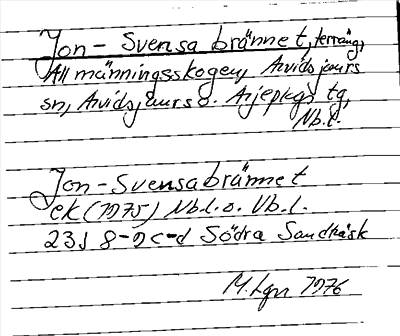 Jon-Svensabrännet, terräng,
Allmänningsskogen, Arvidsjaurs
sn, Arvidsjaurs o. Arjeplogs tg,
Nb.l.
Jon-Svensabrännet
ek (1975) Nb.l. o. Vb.l.
23J 8-9c-d Södra Sandträsk
M. Lgn 1976